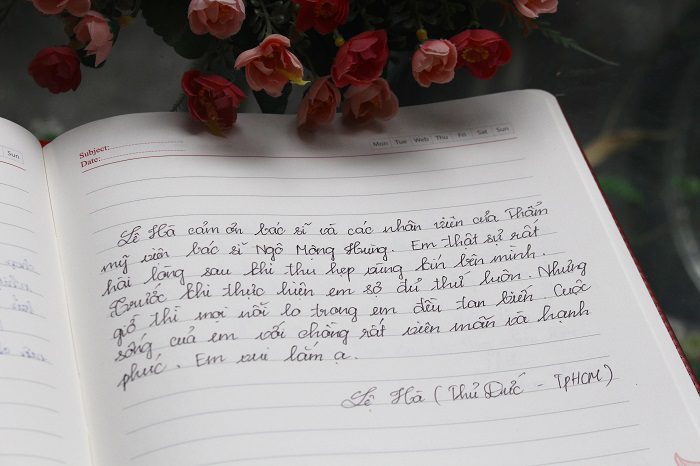 Sun
Subject:
Date:
Mon Tue Wed Thu Fri Sat Sun
Lệ Hà cảm ơn bác sĩ và các nhân viên của Thẩm
mỹ viện bác sĩ Ngô Mộng Hùng. Em thật sự rất
hài lòng sau khi thu hẹp vùng kín bên mình.
Trước khi thực hiện em sợ đủ thứ luôn. Nhưng
giờ thì mọi nỗi lo trong em đều tan biến. Cuộc
sống của em với chồng rất viên mãn và hạnh
phúc. Em vui lắm ạ.
Lệ Hà (Thủ Đức - TpHCM)